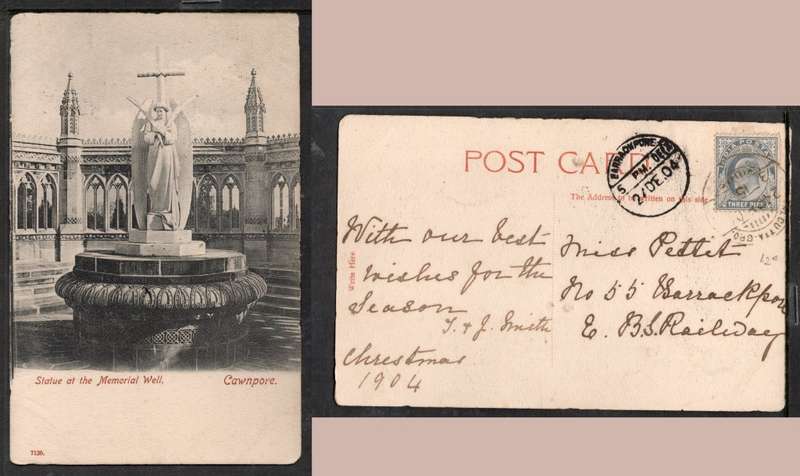 Statue at the Memorial Well. Cawnpore.
7120.
POST CARD
The Address to be written on this side
Write Here.
With our best
wishes for the
Season
T. & J. Smith
Christmas
1904
Miss Pettet
No 55 Barrackpore
E. B.S. Railway
BARRACKPORE
5 PM
DE 04
THREE PIES
CALCUTTA G.P.O.